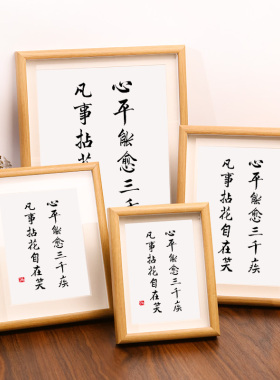 心平能愈三
凡事拈花
心平能愈三千疾
凡事拈花自在笑
心平能愈三千疾
凡事拈花自在笑
心平能愈三千疾
凡事拈花自在笑